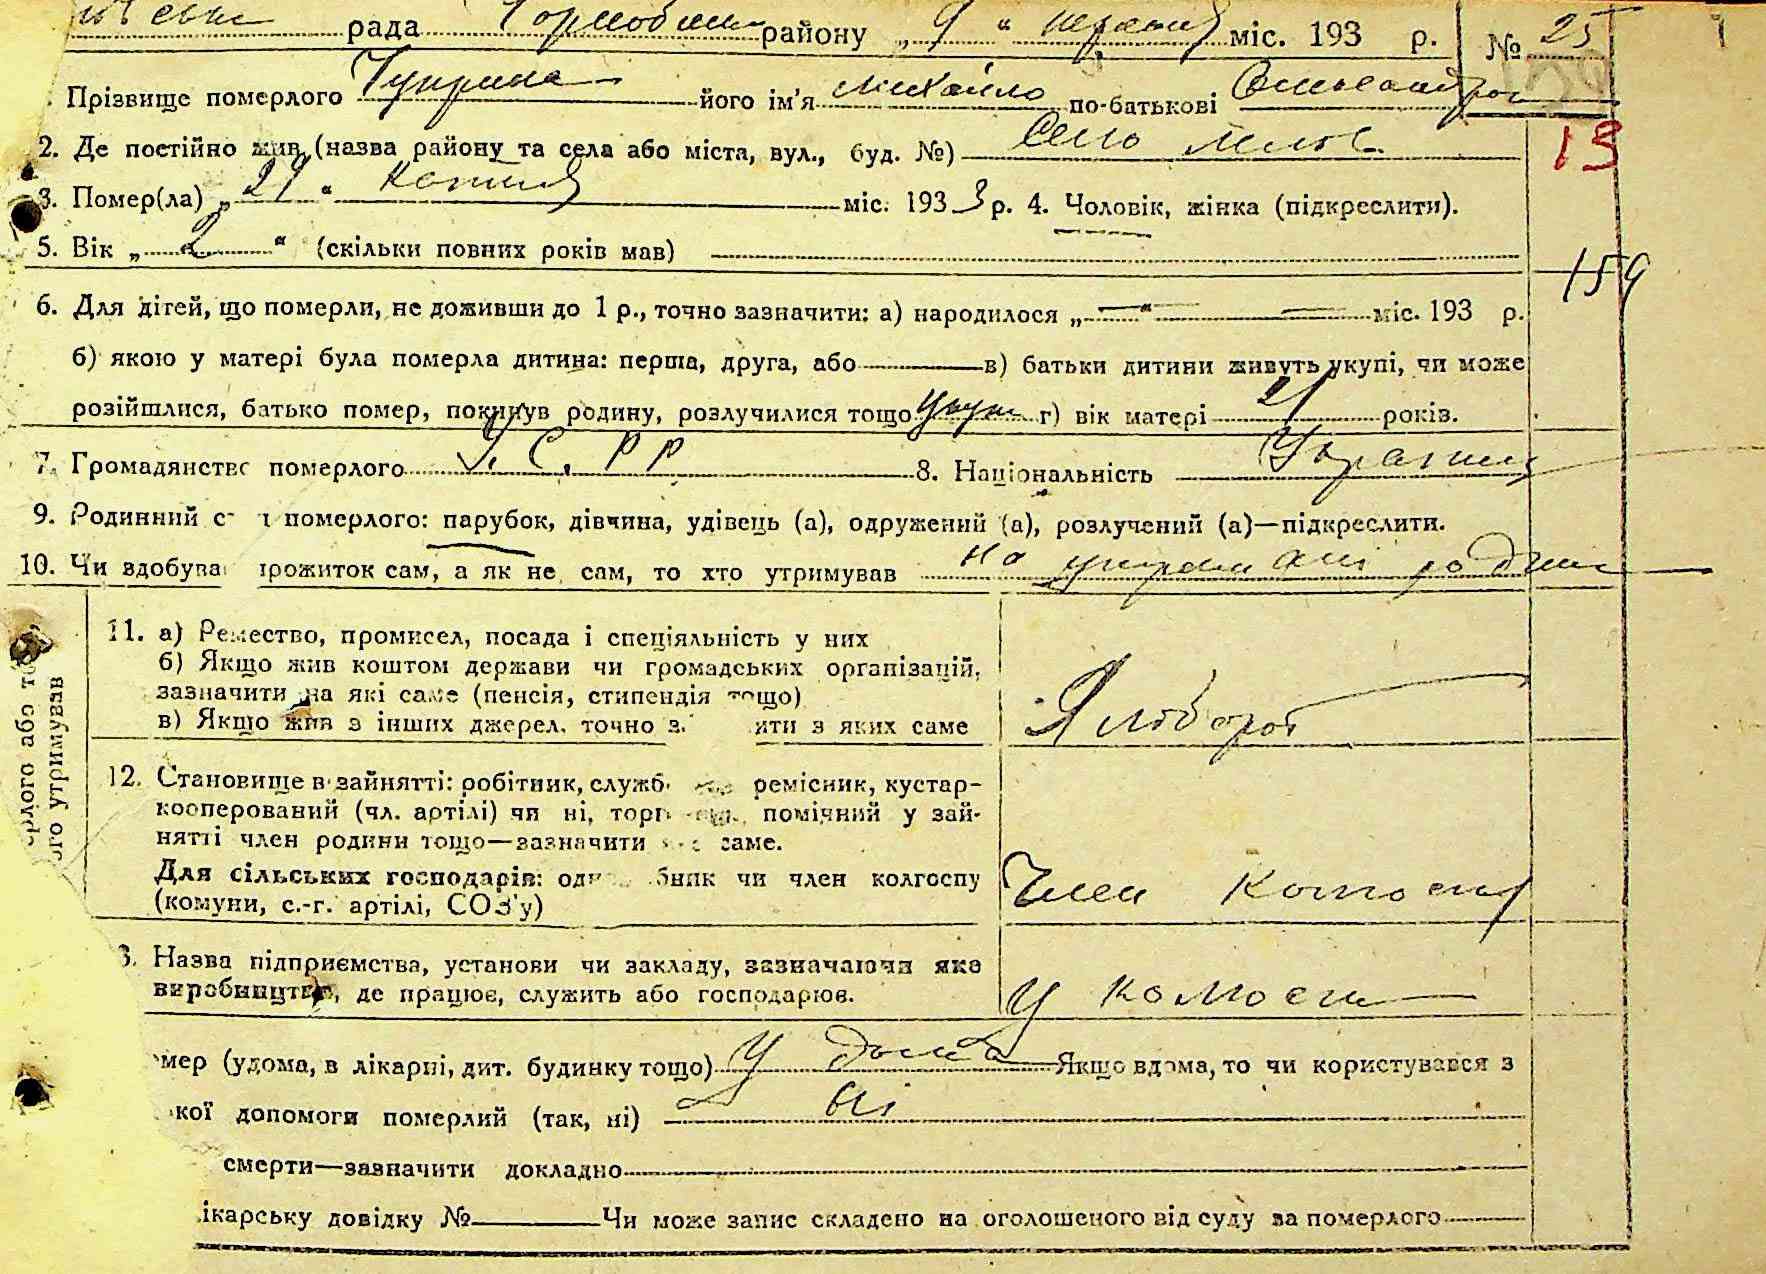 рада району „9“ червня міс. 193 р. № 25
Прізвище померлого Чуприна його ім'я Михайло по-батькові
2. Де постійно жив (назва району та села або міста, вул., буд. №) Село
13
3. Помер(ла) „29“ міс. 1933 р. 4. Чоловік, жінка (підкреслити).
5. Вік „2“ (скільки повних років мав)
159
6. Для дітей, що померли, не доживши до 1 р., точно зазначити: а) народилося „—“ — міс. 193 р.
б) якою у матері була померла дитина: перша, друга, або в) батьки дитини живуть укупі, чи може
розійшлися, батько помер, покинув родину, розлучилися тощо г) вік матері 21 років.
7. Громадянство померлого У. С. Р Р 8. Національність
9. Родинний с померлого: парубок, дівчина, удівець (а), одружений (а), розлучений (а)—підкреслити.
10. Чи здобува прожиток сам, а як не сам, то хто утримував на утриманні родини
рлого або то
ого утримував
11. а) Ремество, промисел, посада і спеціяльність у них
б) Якщо жив коштом держави чи громадських організацій,
зазначити на які саме (пенсія, стипендія тощо)
в) Якщо жив з інших джерел, точно з ити з яких саме
Хлібороб
12. Становище в зайнятті: робітник, служб ремісник, кустар-
кооперований (чл. артілі) чи ні, торг помічний у зай-
нятті член родини тощо—зазначити саме.
Для сільських господарів: одн бник чи член колгоспу
(комуни, с.-г. артілі, СОЗ'у)
Член колгоспу
3. Назва підприємства, установи чи закладу, зазначаючи яке
виробництво, де працює, служить або господарює.
У колгоспі
мер (удома, в лікарні, дит. будинку тощо) У дома Якщо вдома, то чи користувався з
кої допомоги померлий (так, ні) ні
смерти—зазначити докладно
ікарську довідку № Чи може запис складено на оголошеного від суду за померлого